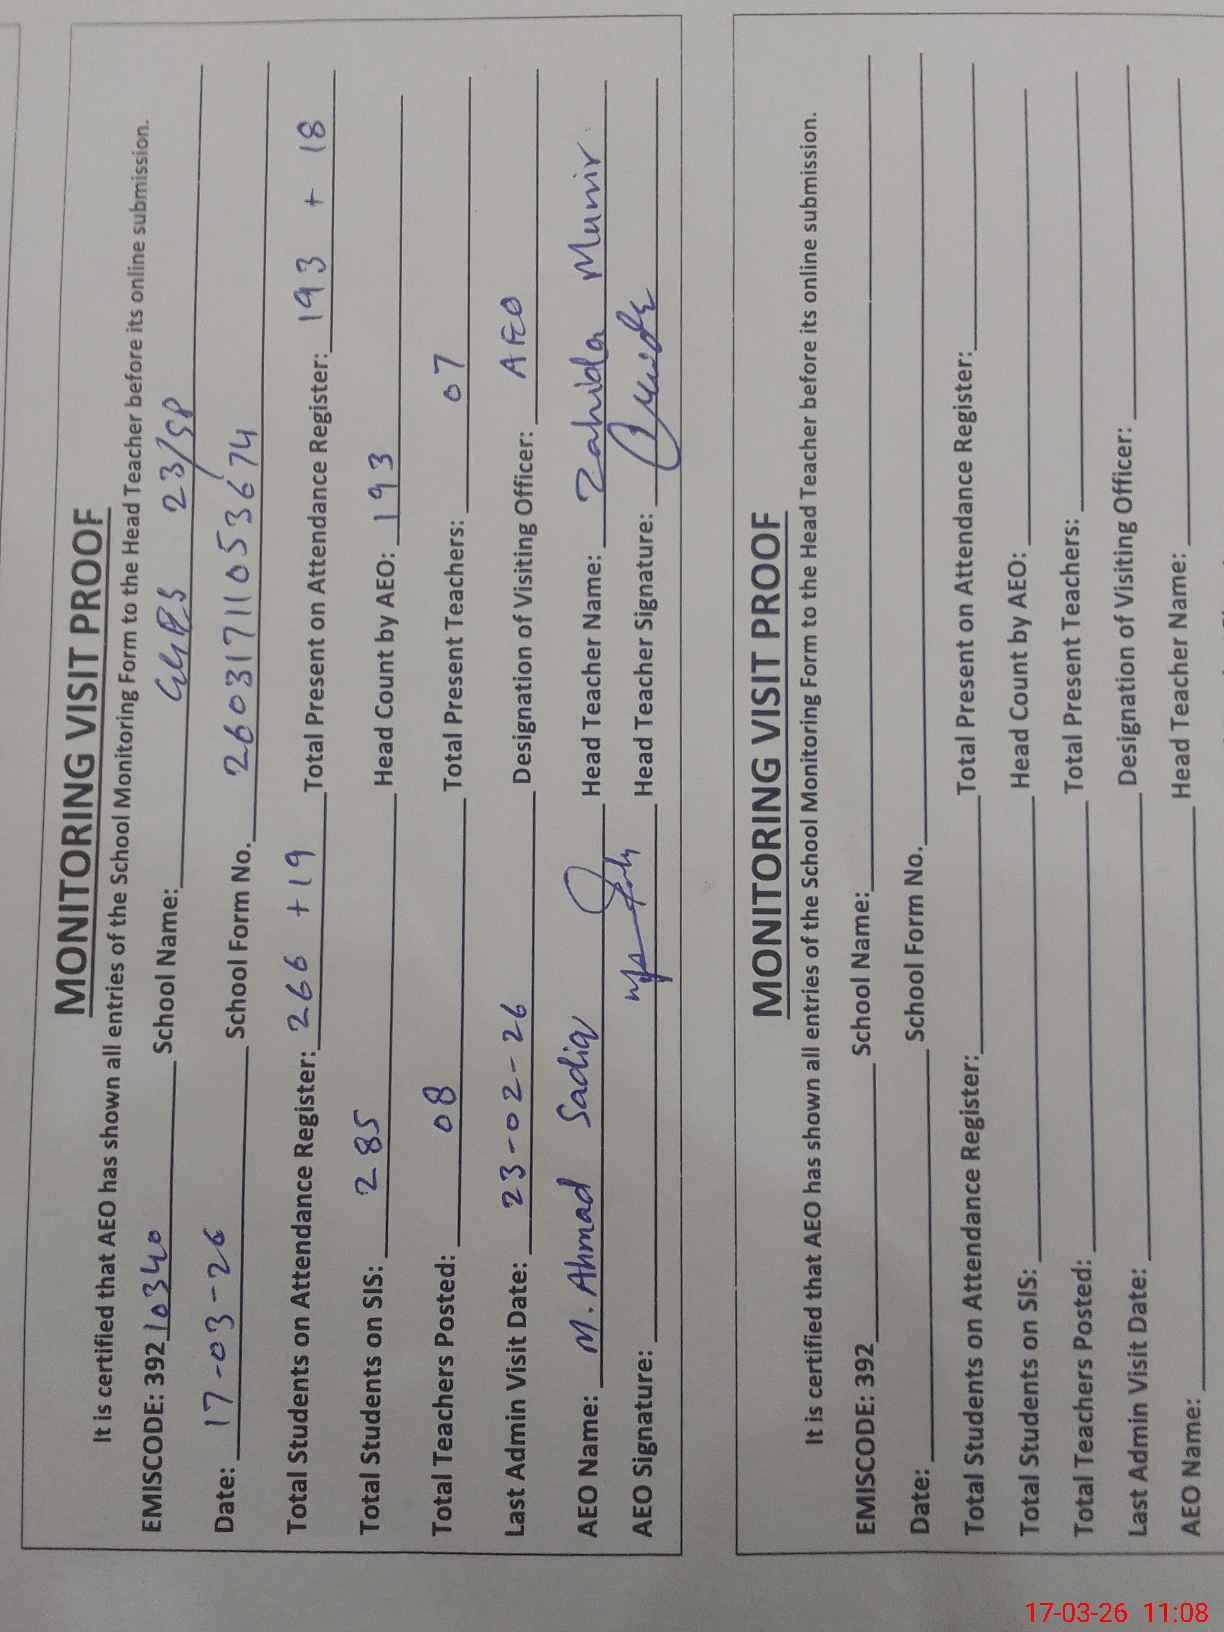 MONITORING VISIT PROOF
It is certified that AEO has shown all entries of the School Monitoring Form to the Head Teacher before its online submission.
EMISCODE: 39210340 School Name: GGPS 23/SP
Date: 17-03-26 School Form No. 26031711053674
Total Students on Attendance Register: 266 + 19 Total Present on Attendance Register: 193 + 18
Total Students on SIS: 285 Head Count by AEO: 193
Total Teachers Posted: 08 Total Present Teachers: 07
Last Admin Visit Date: 23-02-26 Designation of Visiting Officer: AEO
AEO Name: M. Ahmad Sadiq Head Teacher Name: Zahida Munir
AEO Signature: Head Teacher Signature:
MONITORING VISIT PROOF
It is certified that AEO has shown all entries of the School Monitoring Form to the Head Teacher before its online submission.
EMISCODE: 392 School Name:
Date: School Form No.
Total Students on Attendance Register: Total Present on Attendance Register:
Total Students on SIS: Head Count by AEO:
Total Teachers Posted: Total Present Teachers:
Last Admin Visit Date: Designation of Visiting Officer:
AEO Name: Head Teacher Name:
17-03-26 11:08